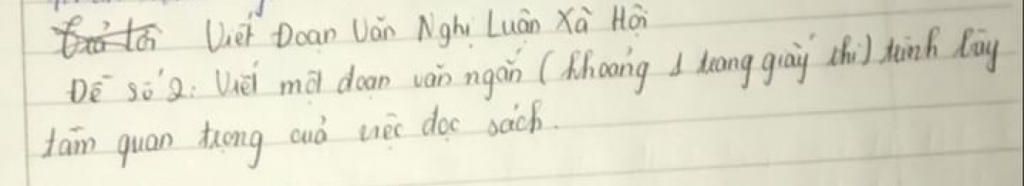 Trả lời Viết Đoạn Văn Nghị Luận Xã Hội
Đề số 2: Viết một đoạn văn ngắn (khoảng 1 trang giấy thi) trình bày
tầm quan trọng của việc đọc sách.